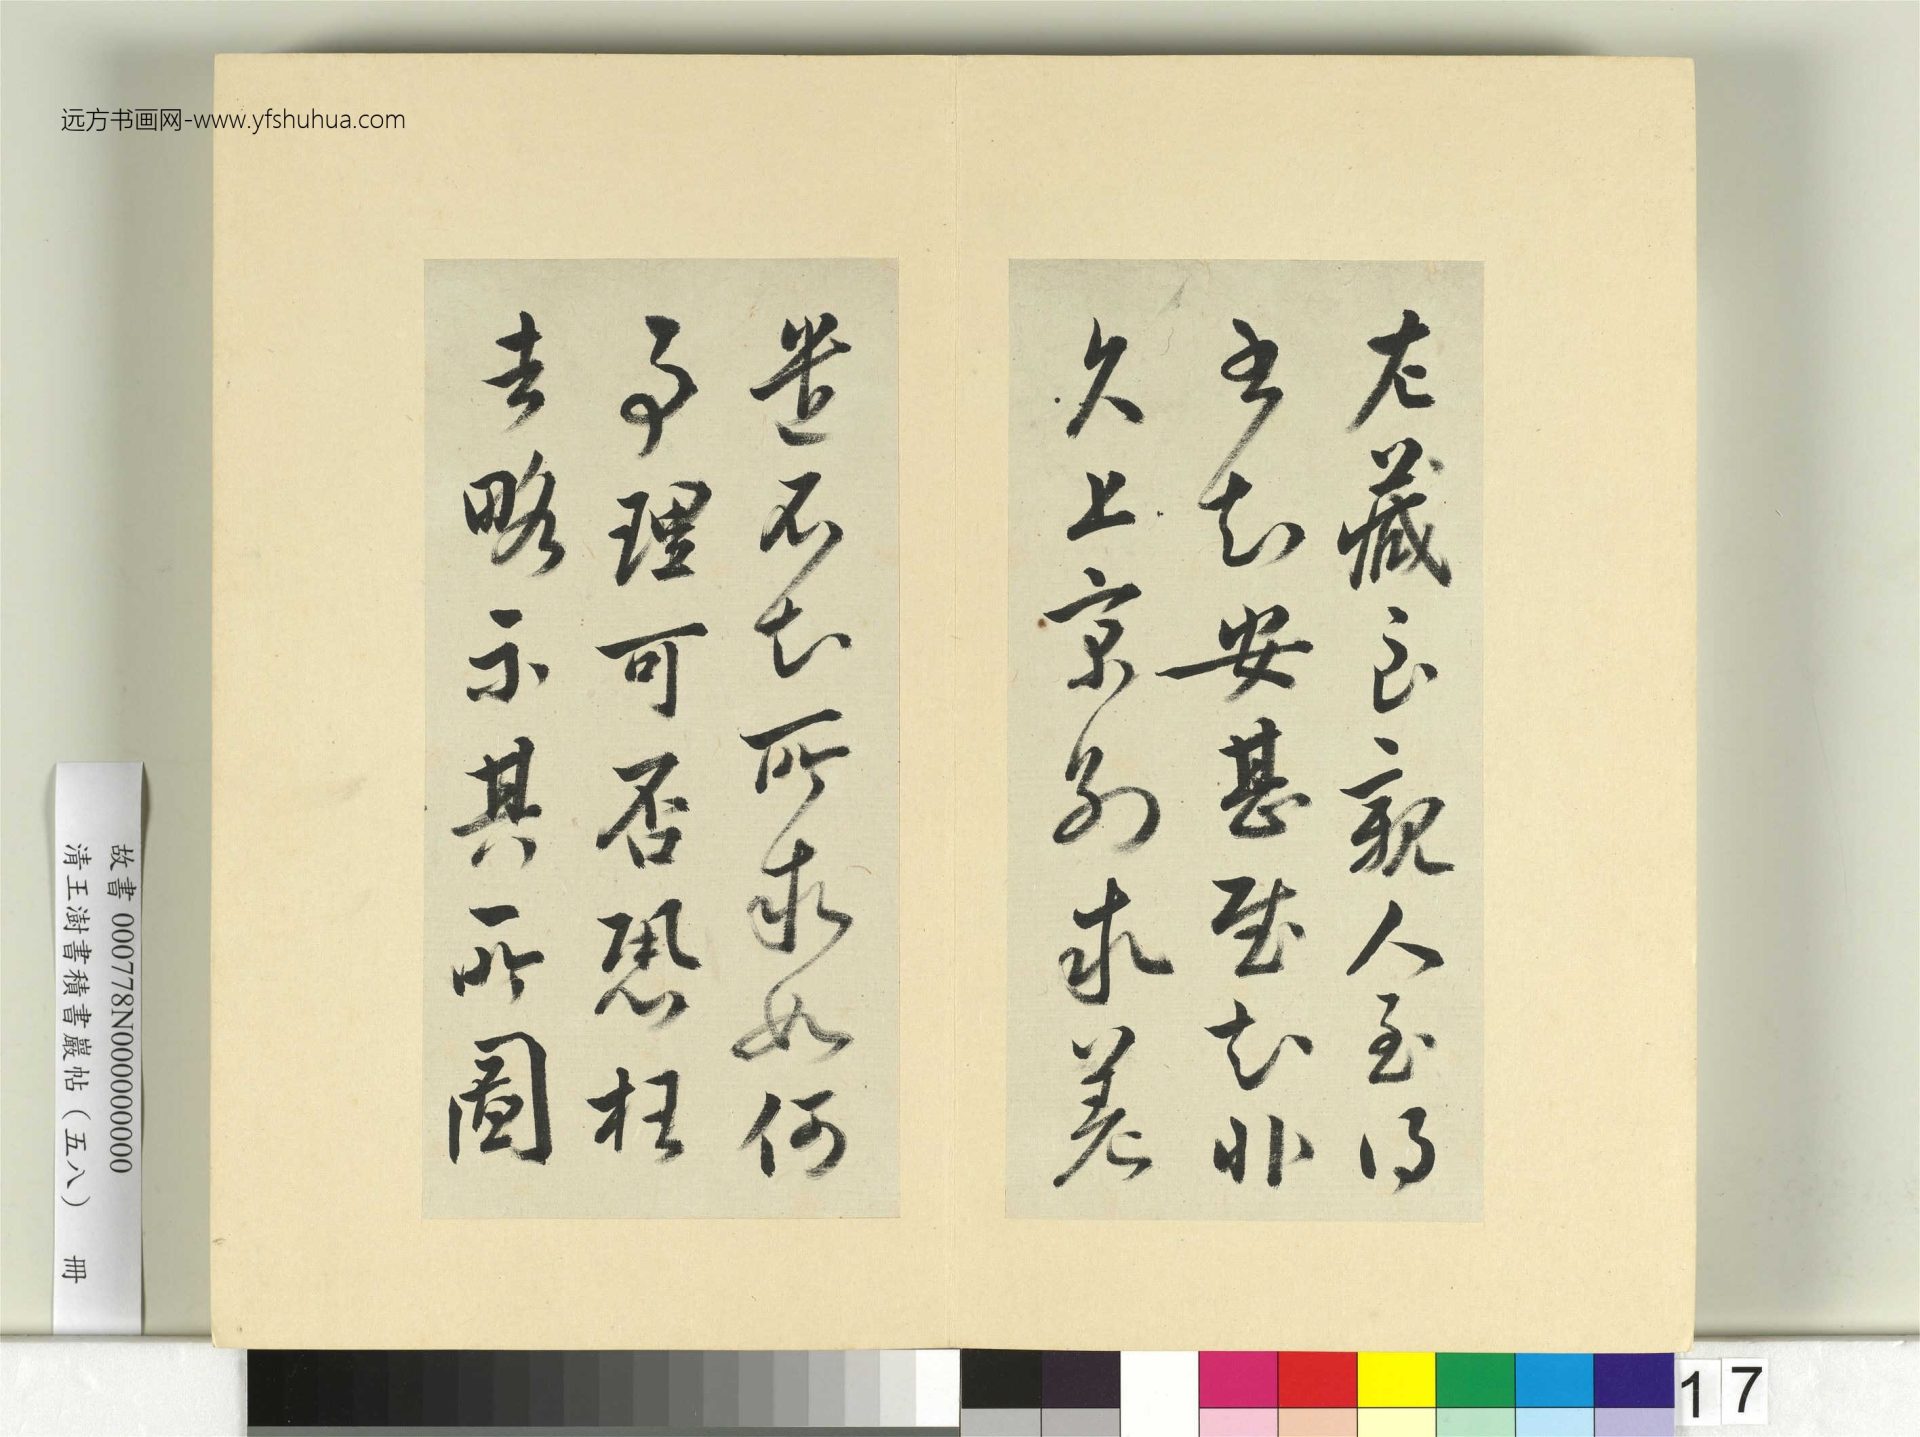 远方书画网-www.yfshuhua.com
左藏良親人至得
書知安甚慰知非
久上京別求差
遣不知所求如何
事理可否恐枉
去略示其所圖
故書 000778N000000000
清王澍書積書巖帖（五八） 冊
17